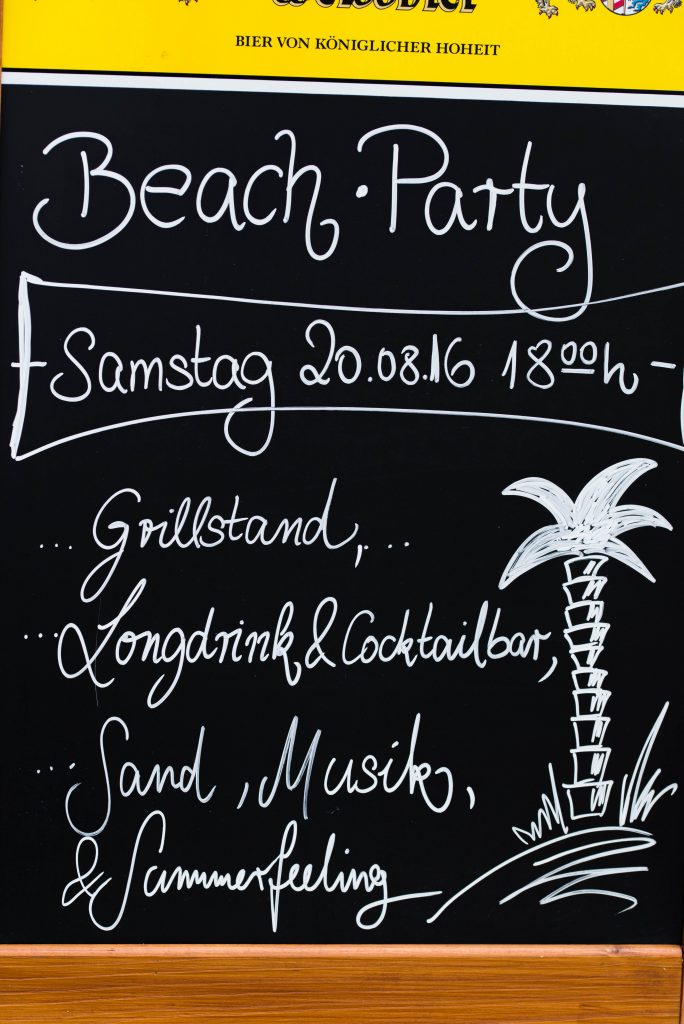 BIER VON KÖNIGLICHER HOHEIT
Beach · Party
- Samstag 20.08.16 18ººh -
... Grillstand, ...
... Longdrink & Cocktailbar,
... Sand, Musik,
& Summerfeeling